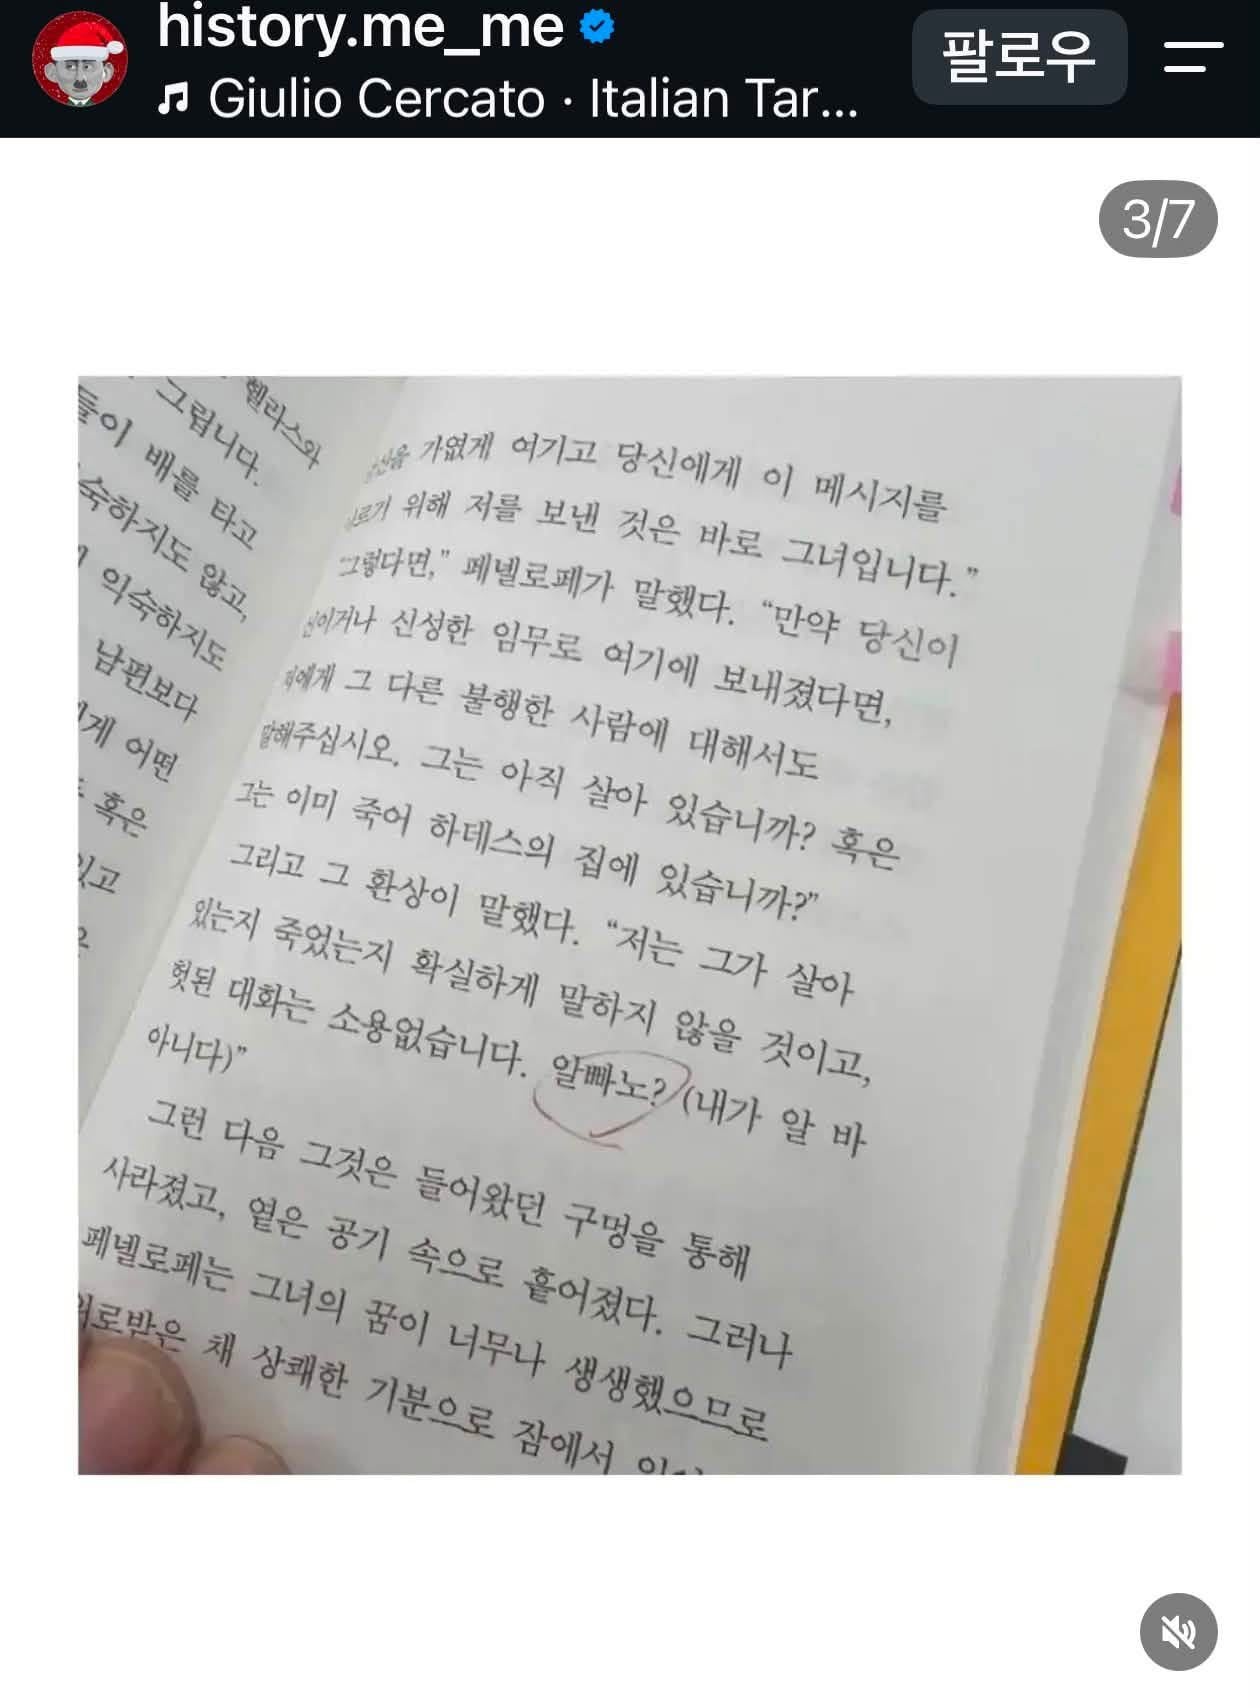 history.me_me
Giulio Cercato · Italian Tar...
팔로우
3/7
헬라스와
그럽니다.
들이 배를 타고
숙하지도 않고,
익숙하지도
남편보다
게 어떤
혹은
있고
가엾게 여기고 당신에게 이 메시지를
위해 저를 보낸 것은 바로 그녀입니다.”
“그렇다면,” 페넬로페가 말했다. “만약 당신이
신이거나 신성한 임무로 여기에 보내졌다면,
저에게 그 다른 불행한 사람에 대해서도
말해주십시오. 그는 아직 살아 있습니까? 혹은
그는 이미 죽어 하데스의 집에 있습니까?”
그리고 그 환상이 말했다. “저는 그가 살아
있는지 죽었는지 확실하게 말하지 않을 것이고,
헛된 대화는 소용없습니다. 알빠노? (내가 알 바
아니다)”
그런 다음 그것은 들어왔던 구멍을 통해
사라졌고, 옅은 공기 속으로 흩어졌다. 그러나
페넬로페는 그녀의 꿈이 너무나 생생했으므로
위로받은 채 상쾌한 기분으로 잠에서